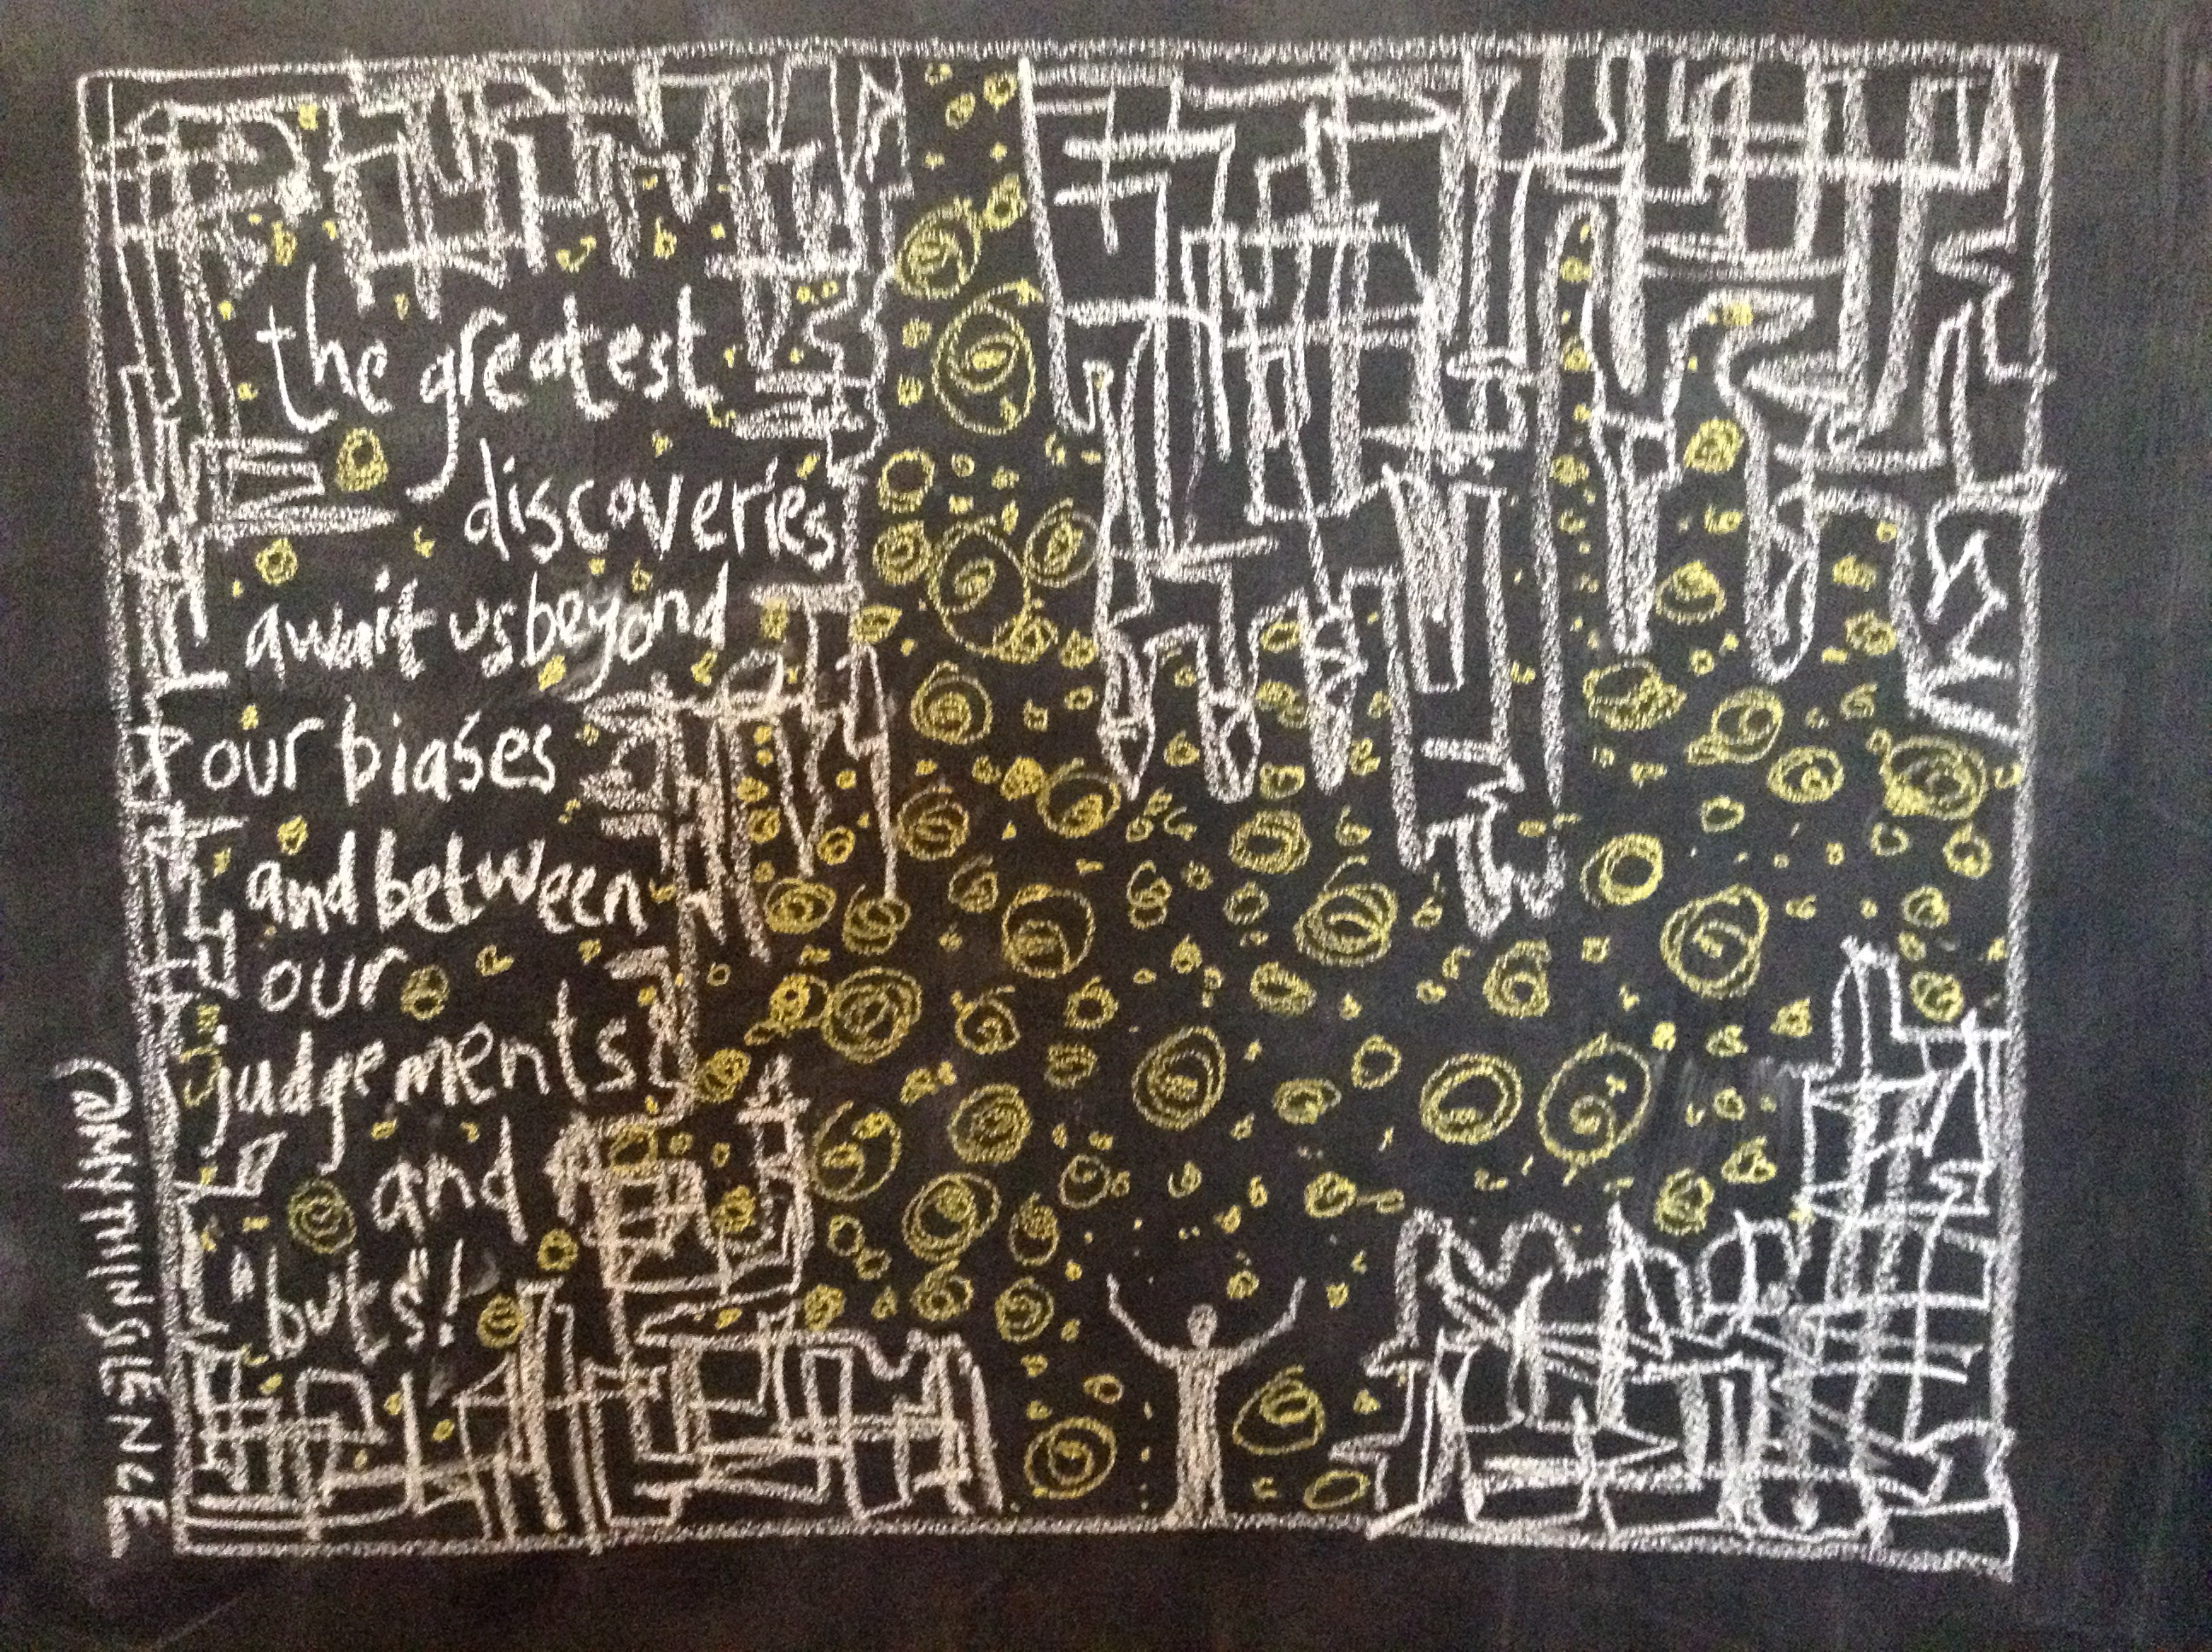 the greatest
discoveries
await us beyond
our biases
and between
our
judgements
and
"buts"!